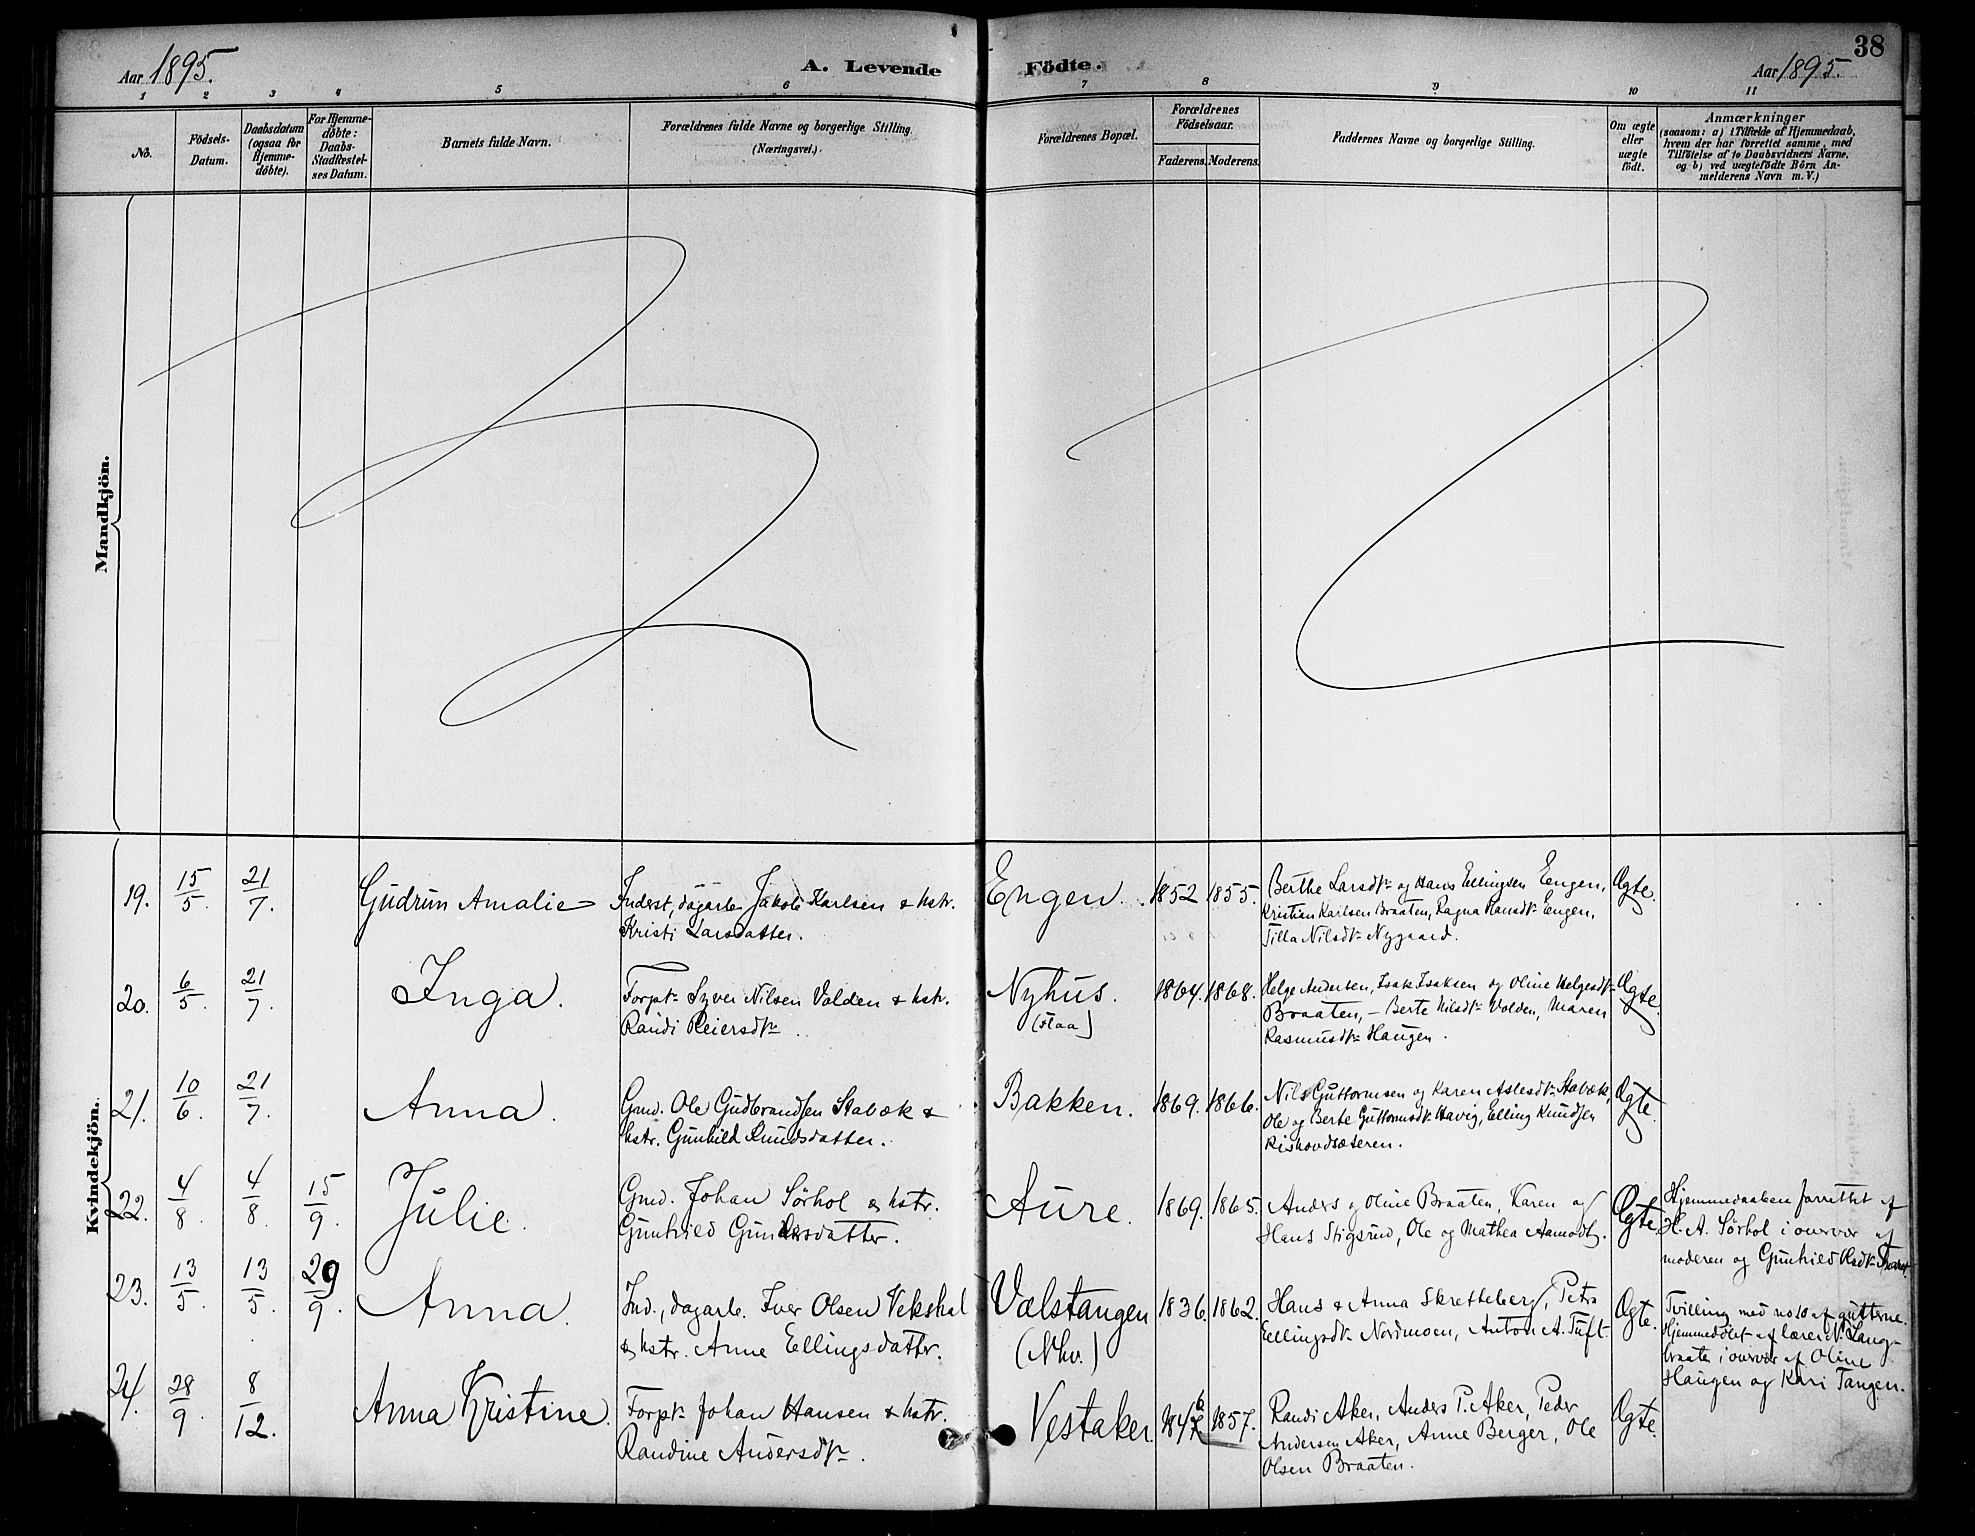 38
Aar 1895.
A. Levende
Födte.
Aar 1895.
1 2 3 4 5 6 7 8 9 10 11
No.
Födsels-
Datum.
Daabsdatum
(ogsaa for
Hjemme-
døbte).
For Hjemme-
døbte:
Daabs-
Stadfæstel-
ses Datum.
Barnets fulde Navn.
Forældrenes fulde Navne og borgerlige Stilling.
(Næringsvei.)
Forældrenes Bopæl.
Forældrenes
Födselsaar.
Faderens. Moderens.
Faddernes Navne og borgerlige Stilling.
Om ægte
eller
uægte
født.
Anmærkninger
(saasom: a) i Tilfælde af Hjemmedaab,
hvem der har forrettet samme, med
Tilføielse af to Daabsvidners Navne,
og b) ved uægtefødte Börn An-
melderens Navn m. V.)
Mandkjön.
Kvindekjön.
19. 15/5. 21/7. Gudrun Amalie
Inderst, dagarb. Jakob Karlsen & hstr.
Kristi Larsdatter.
Engen. 1852 1855.
Berthe Larsdtr og Hans Ellingsen Engen,
Kristian Karlsen Braaten, Ragna Hansdtr Engen,
Tilla Nilsdtr Nygaard.
Ægte.
20. 6/5. 21/7. Inga.
Forpt Syver Nilsen Volden & hstr.
Randi Reiersdtr
Nyhus.
(Flaa)
1864. 1868.
Helge Andersen, Isak Isaksen og Oline Helgesdtr
Braaten, – Berte Nilsdtr Volden, Maren
Rasmusdtr Haugen.
Ægte.
21. 10/6. 21/7. Anna.
Gmd. Ole Gudbrandsen Stabæk &
hstr. Gunhild Knudsdatter.
Bakken. 1869. 1866.
Nils Guttormsen og Karen Aslesdtr Stabæk,
Ole og Berte Guttormsdtr Havig, Elling Knudsen
Riskovdsæteren.
Ægte.
22. 4/8. 4/8. 15/9. Julie.
Gmd. Johan Sørhol & hstr.
Gunhild Gundersdatter.
Aure. 1869. 1865.
Anders og Oline Braaten, Karen og
Hans Stigsrud, Ole og Mathea Aamodt.
Ægte
Hjemmedaaben forrettet af
H. A. Sørhol i overvær af
moderen og Gunhild
23. 13/5. 13/5. 29/9. Anna.
Ind., dagarb. Iver Olsen Vekshal
& hstr. Anne Ellingsdatter.
Vælstangen
(Nhv.)
1836. 1862.
Hans & Anna Skretteberg, Petra
Ellingsdtr Nordmoen, Anton A. Tuft
Ægte.
Tvilling med no 10 af gutterne.
Hjemmedøbt af lærer N. Lang-
braaten i overvær af Oline
Haugen og Kari Tangen.
24. 28/9. 8/12. Anna Kristine.
Forpt Johan Hansen & hstr.
Randine Andersdtr.
Vestaker. 1846 1857.
Randi Aker, Anders P. Aker, Peder
Andersen Aker, Anne Berger, Ole
Olsen Braaten.
Ægte.